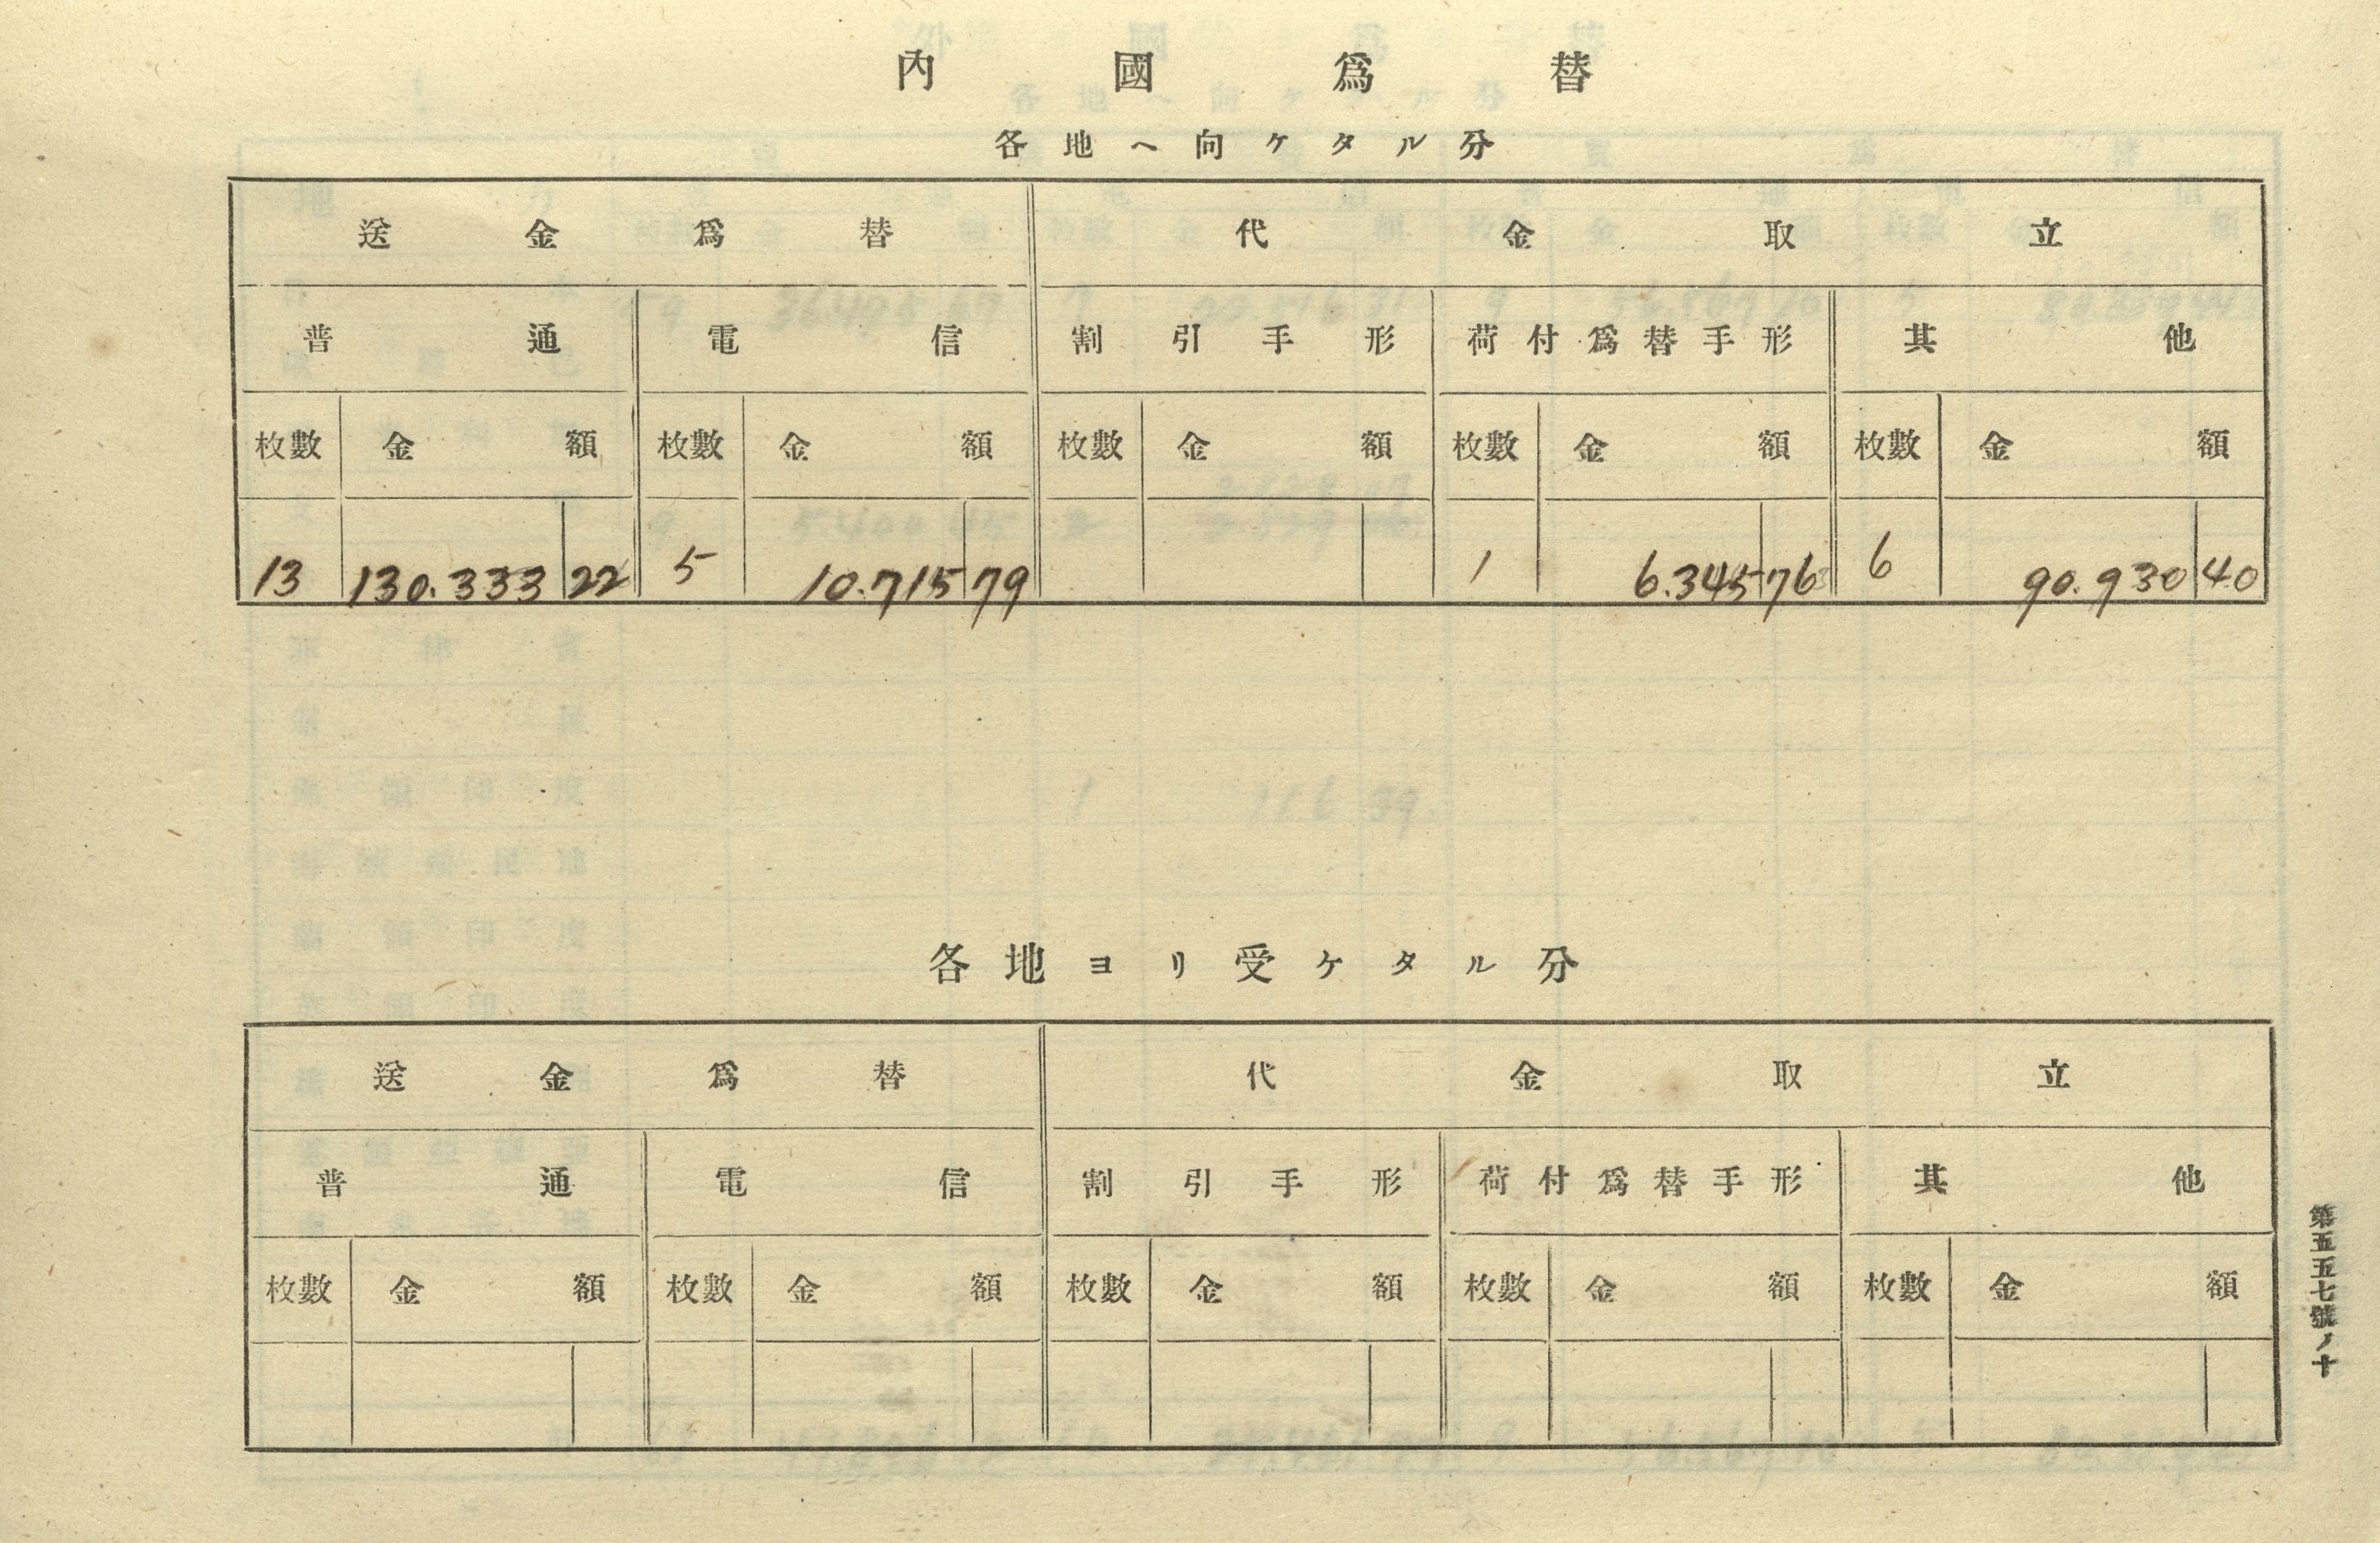 內國爲替
各地ヘ向ケタル分
送金爲替 代金取立
普通 電信 割引手形 荷付爲替手形 其他
枚數 金額 枚數 金額 枚數 金額 枚數 金額 枚數 金額
13 130.333 22 5 10.715 79 1 6.345 76 6 90.930 40
各地ヨリ受ケタル分
送金爲替 代金取立
普通 電信 割引手形 荷付爲替手形 其他
枚數 金額 枚數 金額 枚數 金額 枚數 金額 枚數 金額
第五五七號ノ十